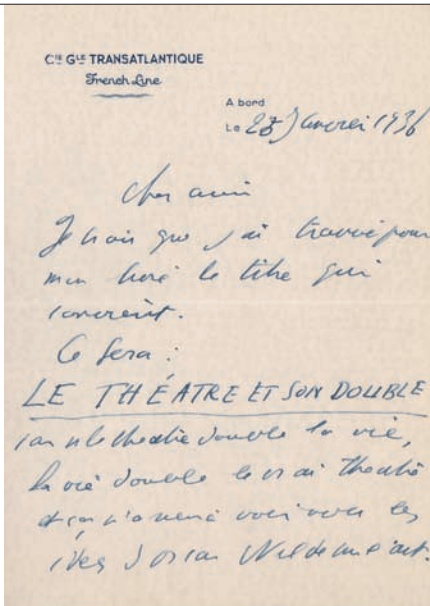 Cie Gle TRANSATLANTIQUE
French Line
A bord
Le 25 Janvier 1936
Cher ami
Je crois que j'ai trouvé pour
mon livre le titre qui
convient.
Ce sera :
LE THÉATRE ET SON DOUBLE
car si le theatre double la vie,
la vie double le vrai theatre
et ça n'a rien à voir avec les
idées d'Oscar Wilde sur l'art.